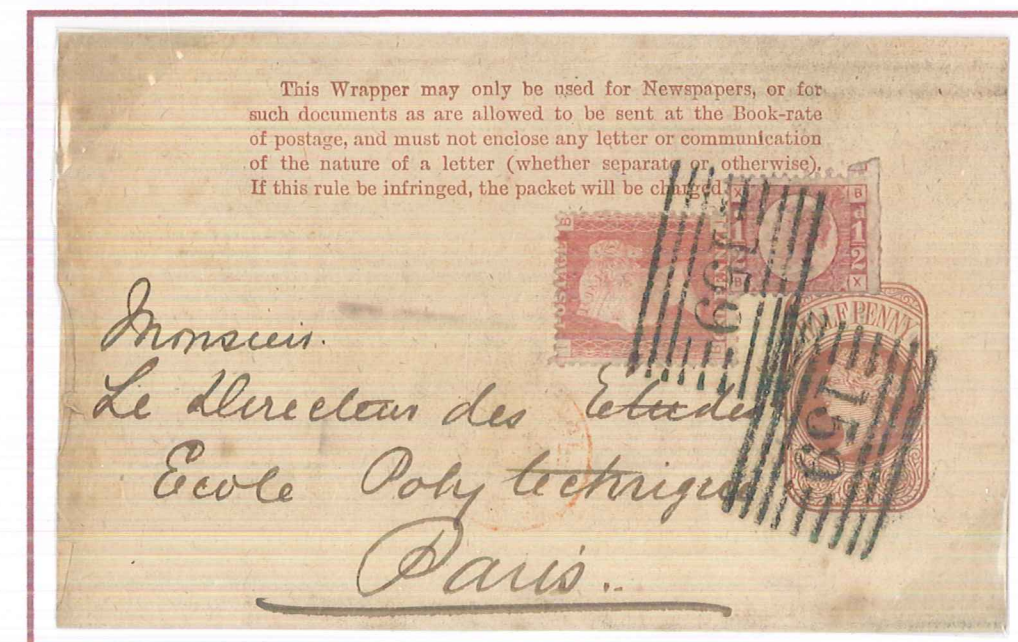 This Wrapper may only be used for Newspapers, or for
such documents as are allowed to be sent at the Book-rate
of postage, and must not enclose any letter or communication
of the nature of a letter (whether separate or otherwise).
If this rule be infringed, the packet will be charged
X B
d 1/2
B X
B
159
HALF PENNY
159
Monsieur.
Le Directeur des Etudes
Ecole Polytechnique
Paris..